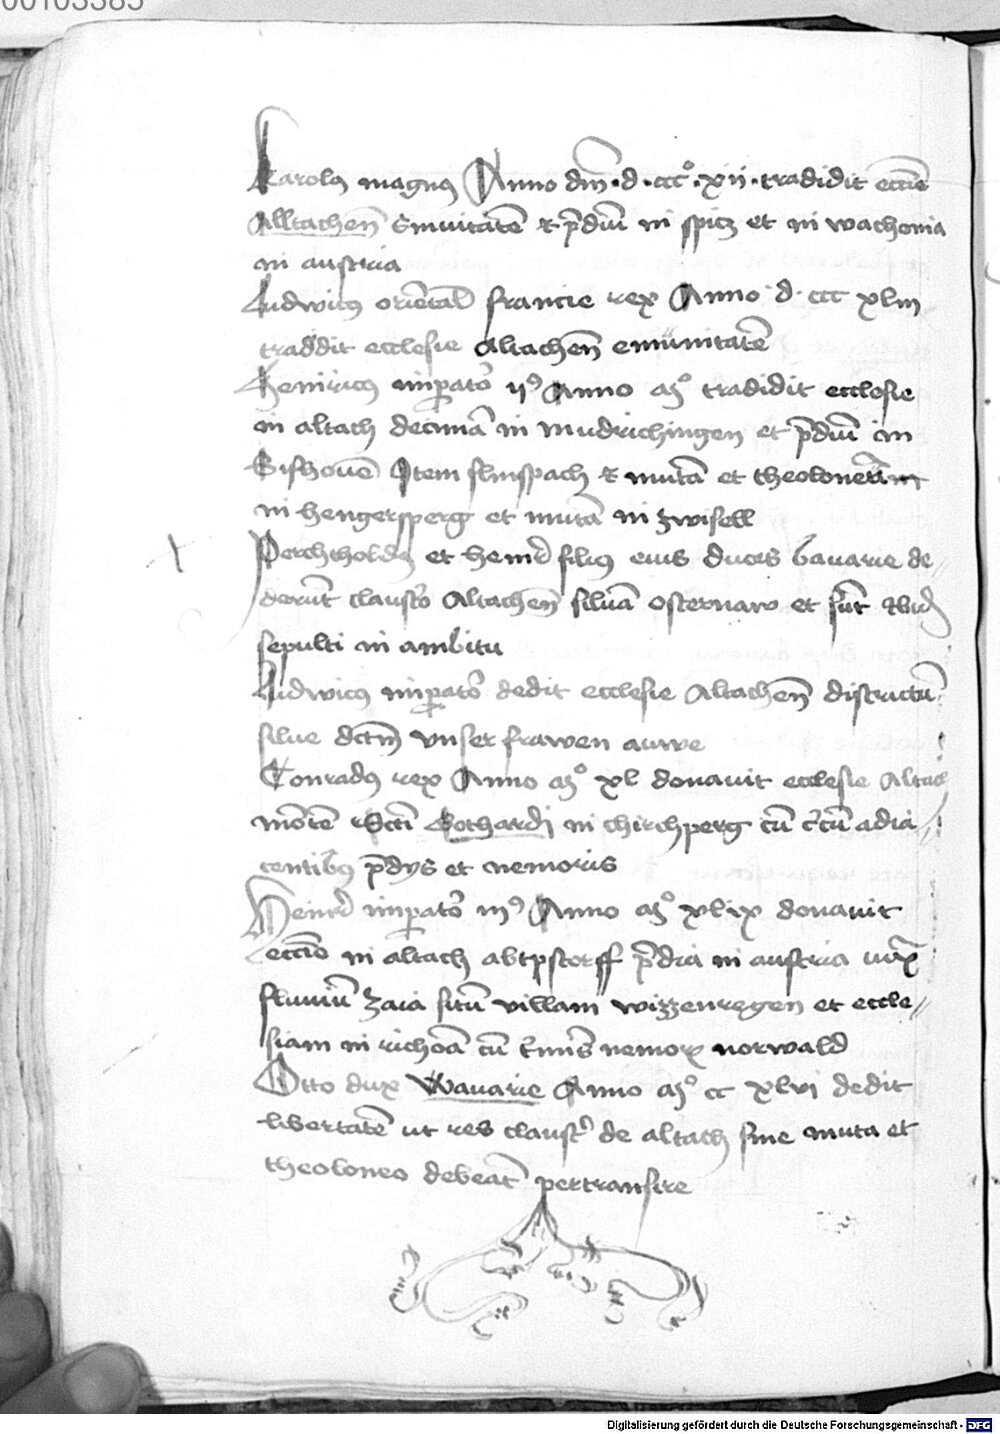 00103385
Karolus magnus Anno dni d cccº xii tradidit eccie
Alltachen emunitate et pdiu in spitz et in wachonia
in austria
Ludwicus oriental francie rex Anno d ccc xliii
traddit ecclesie Altachen emunitate
Heinricus imperator ii9 Anno mº tradidit ecclesie
in altach decima in mudrichingen et pdiu in
Bishoue Item flinspach et muta et theoloneum
in hengersperg et muta in zwisell
Perchtholdus et heinr filius eius duces bavarie de
derunt claustro Altachen silva osternaw et sunt ibid
sepulti in ambitu
Ludwicus imperator dedit ecclesie Altachen districtu
silve dctm unser frawen auwe
Conradus rex Anno mº xl donavit ecclesie Altach
monte Scti Gothardi in chirchperg cu adia
centibus pdys et nemoris
Heinr imperator iii9 Anno mº xlix donavit
eccie in altach abtpstorff predia in austria iuxta
fluviu zaia situ villam wizzenregen et eccle
siam in richoa cu nemor norwald
Otto dux Wavarie Anno mº cc xlvi dedit
libertate ut res claustri de altach sine muta et
theoloneo debeat pertransire
Digitalisierung gefördert durch die Deutsche Forschungsgemeinschaft - DFG